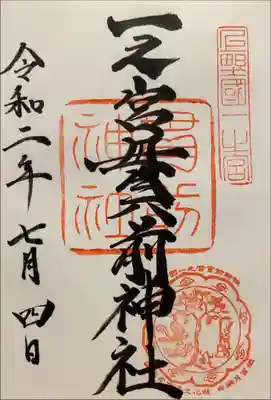 上野國一之宮
一之宮貫前神社
貫前神社
令和二年七月四日